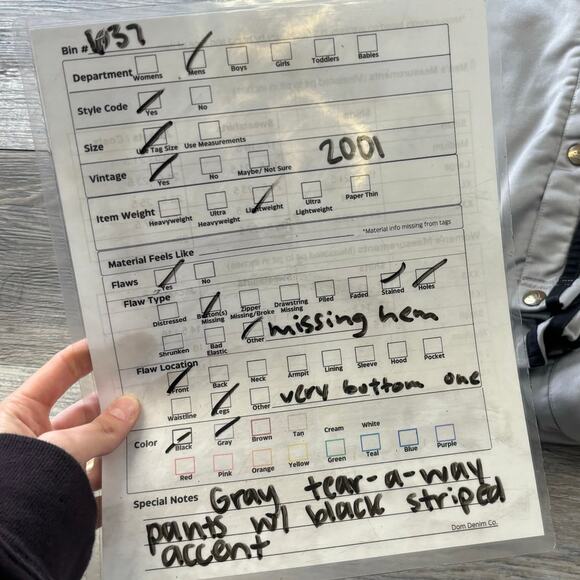 Bin # W37
Department Womens Mens Boys Girls Toddlers Babies
Style Code Yes No
Size Use Tag Size Use Measurements
Vintage Yes No Maybe/ Not Sure 2001
Item Weight Heavyweight Ultra Heavyweight Lightweight Ultra Lightweight Paper Thin
Material Feels Like *Material info missing from tags
Flaws Yes No
Flaw Type Distressed Button(s) Missing Zipper Missing/Broke Drawstring Missing Piled Faded Stained Holes
Shrunken Bad Elastic Other missing hem
Flaw Location Front Back Neck Armpit Lining Sleeve Hood Pocket
Waistline Legs Other very bottom one
Color Black Gray Brown Tan Cream White
Red Pink Orange Yellow Green Teal Blue Purple
Special Notes Gray tear-a-way
pants w/ black striped
accent
Dom Denim Co.